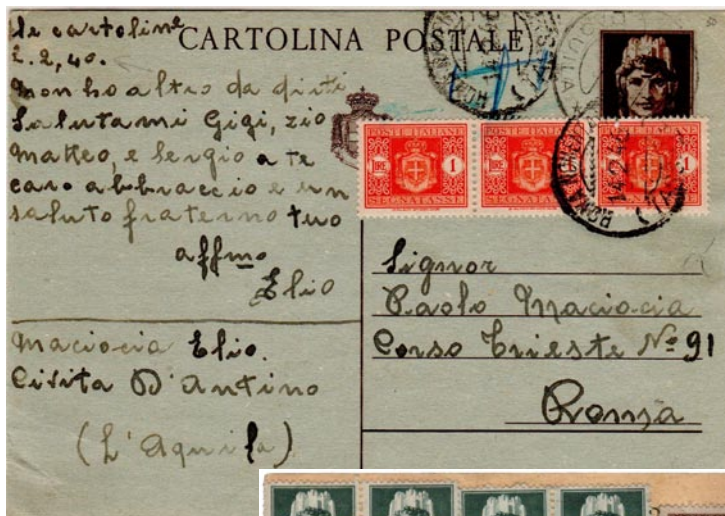 CARTOLINA POSTALE
le cartoline
2.2,40.
non ho altro da dirti
Salutami Gigi, zio
Matteo, e Sergio a te
caro abbraccio e un
saluto fraterno tuo
affmo
Elio
Maciocia Elio.
Civita D'Antino
(L'Aquila)
POSTE ITALIANE
LIRE 1
SEGNATASSE
POSTE ITALIANE
LIRE 1
SEGNATASSE
POSTE ITALIANE
1
SEGNATASSE
ROMA
14.2
AQUILA
Signor
Paolo Maciocia
Corso Trieste No 91
Roma